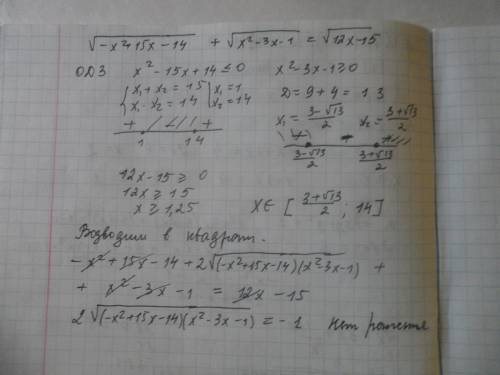 √(-x²+15x-14) + √(x²-3x-1) = √(12x-15)
ОДЗ x²-15x+14≤0 x²-3x-1≥0
{x₁+x₂=15 |x₁=1 D=9+4=13
{x₁·x₂=14 |x₂=14 x₁=(3-√13)/2 x₂=(3+√13)/2
+ - +
1 14 (3-√13)/2 (3+√13)/2
12x-15≥0
12x≥15
x≥1,25 x∈[(3+√13)/2; 14]
Возводим в квадрат.
-x²+15x-14+2√((-x²+15x-14)(x²-3x-1)) +
+ x²-3x-1 = 12x-15
2√((-x²+15x-14)(x²-3x-1)) = -1 нет решения